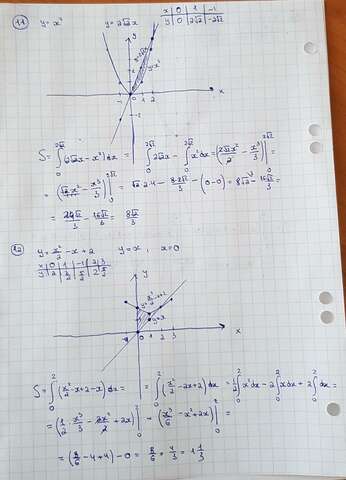 11 y = x² y = 2√2x
x 0 1 -1
y 0 2√2 -2√2
y
y=2√2x
y=x²
-1 0 1 2 x
S = ∫₀^{2√2} (2√2x - x²) dx = ∫₀^{2√2} 2√2x - ∫₀^{2√2} x² dx = (2√2x²/2 - x³/3) |₀^{2√2} =
= (√2·x² - x³/3) |₀^{2√2} = √2·2·4 - 8·2√2/3 - (0-0) = 8√2 - 16√2/3 =
= 24√2/3 - 16√2/3 = 8√2/3
12 y = x²/2 - x + 2 y = x, x = 0
x 0 1 -1 2 3
y
y = x²/2 - x + 2
y = x
-1 0 1 2 3 x
S = ∫₀² (x²/2 - x + 2 - x) dx = ∫₀² (x²/2 - 2x + 2) dx = 1/2 ∫₀² x² dx - 2 ∫₀² x dx + 2 ∫₀² dx =
= (1/2 · x³/3 - 2x²/2 + 2x) |₀² = (x³/6 - x² + 2x) |₀² =
= (8/6 - 4 + 4) - 0 = 8/6 = 4/3 = 1 1/3